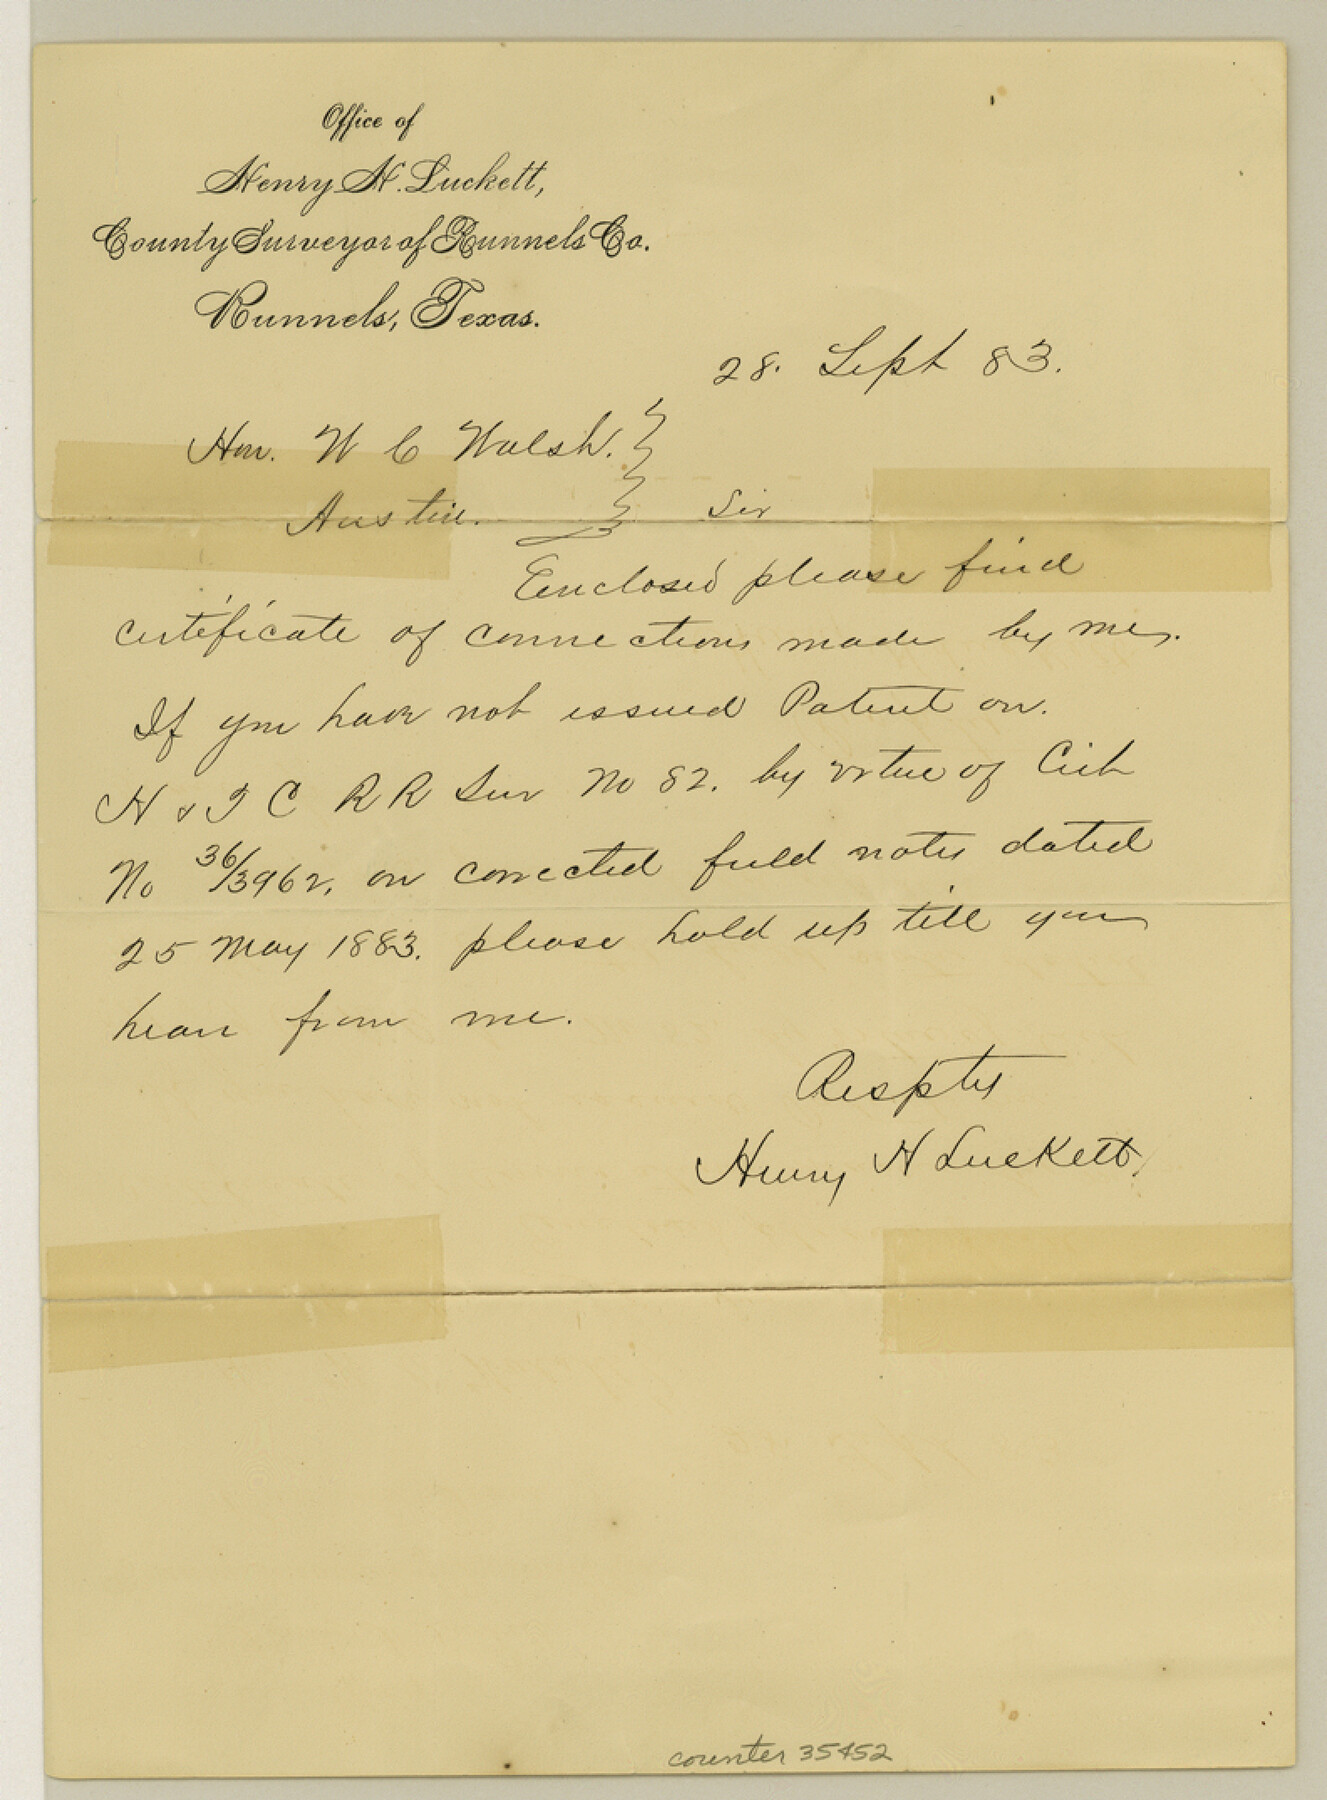 Office of
Henry H. Luckett,
County Surveyor of Runnels Co.
Runnels, Texas.
28. Sept 83.
Hon. W C Walsh.
Austin. Sir
Enclosed please find
certificate of connections made by me.
If you have not issued Patent on.
H & T C R R Sur No 82. by virtue of Cert
No 36/3962, on corrected field notes dated
25 May 1883. please hold up till you
hear from me.
Resptly
Henry H Luckett.
counter 35452